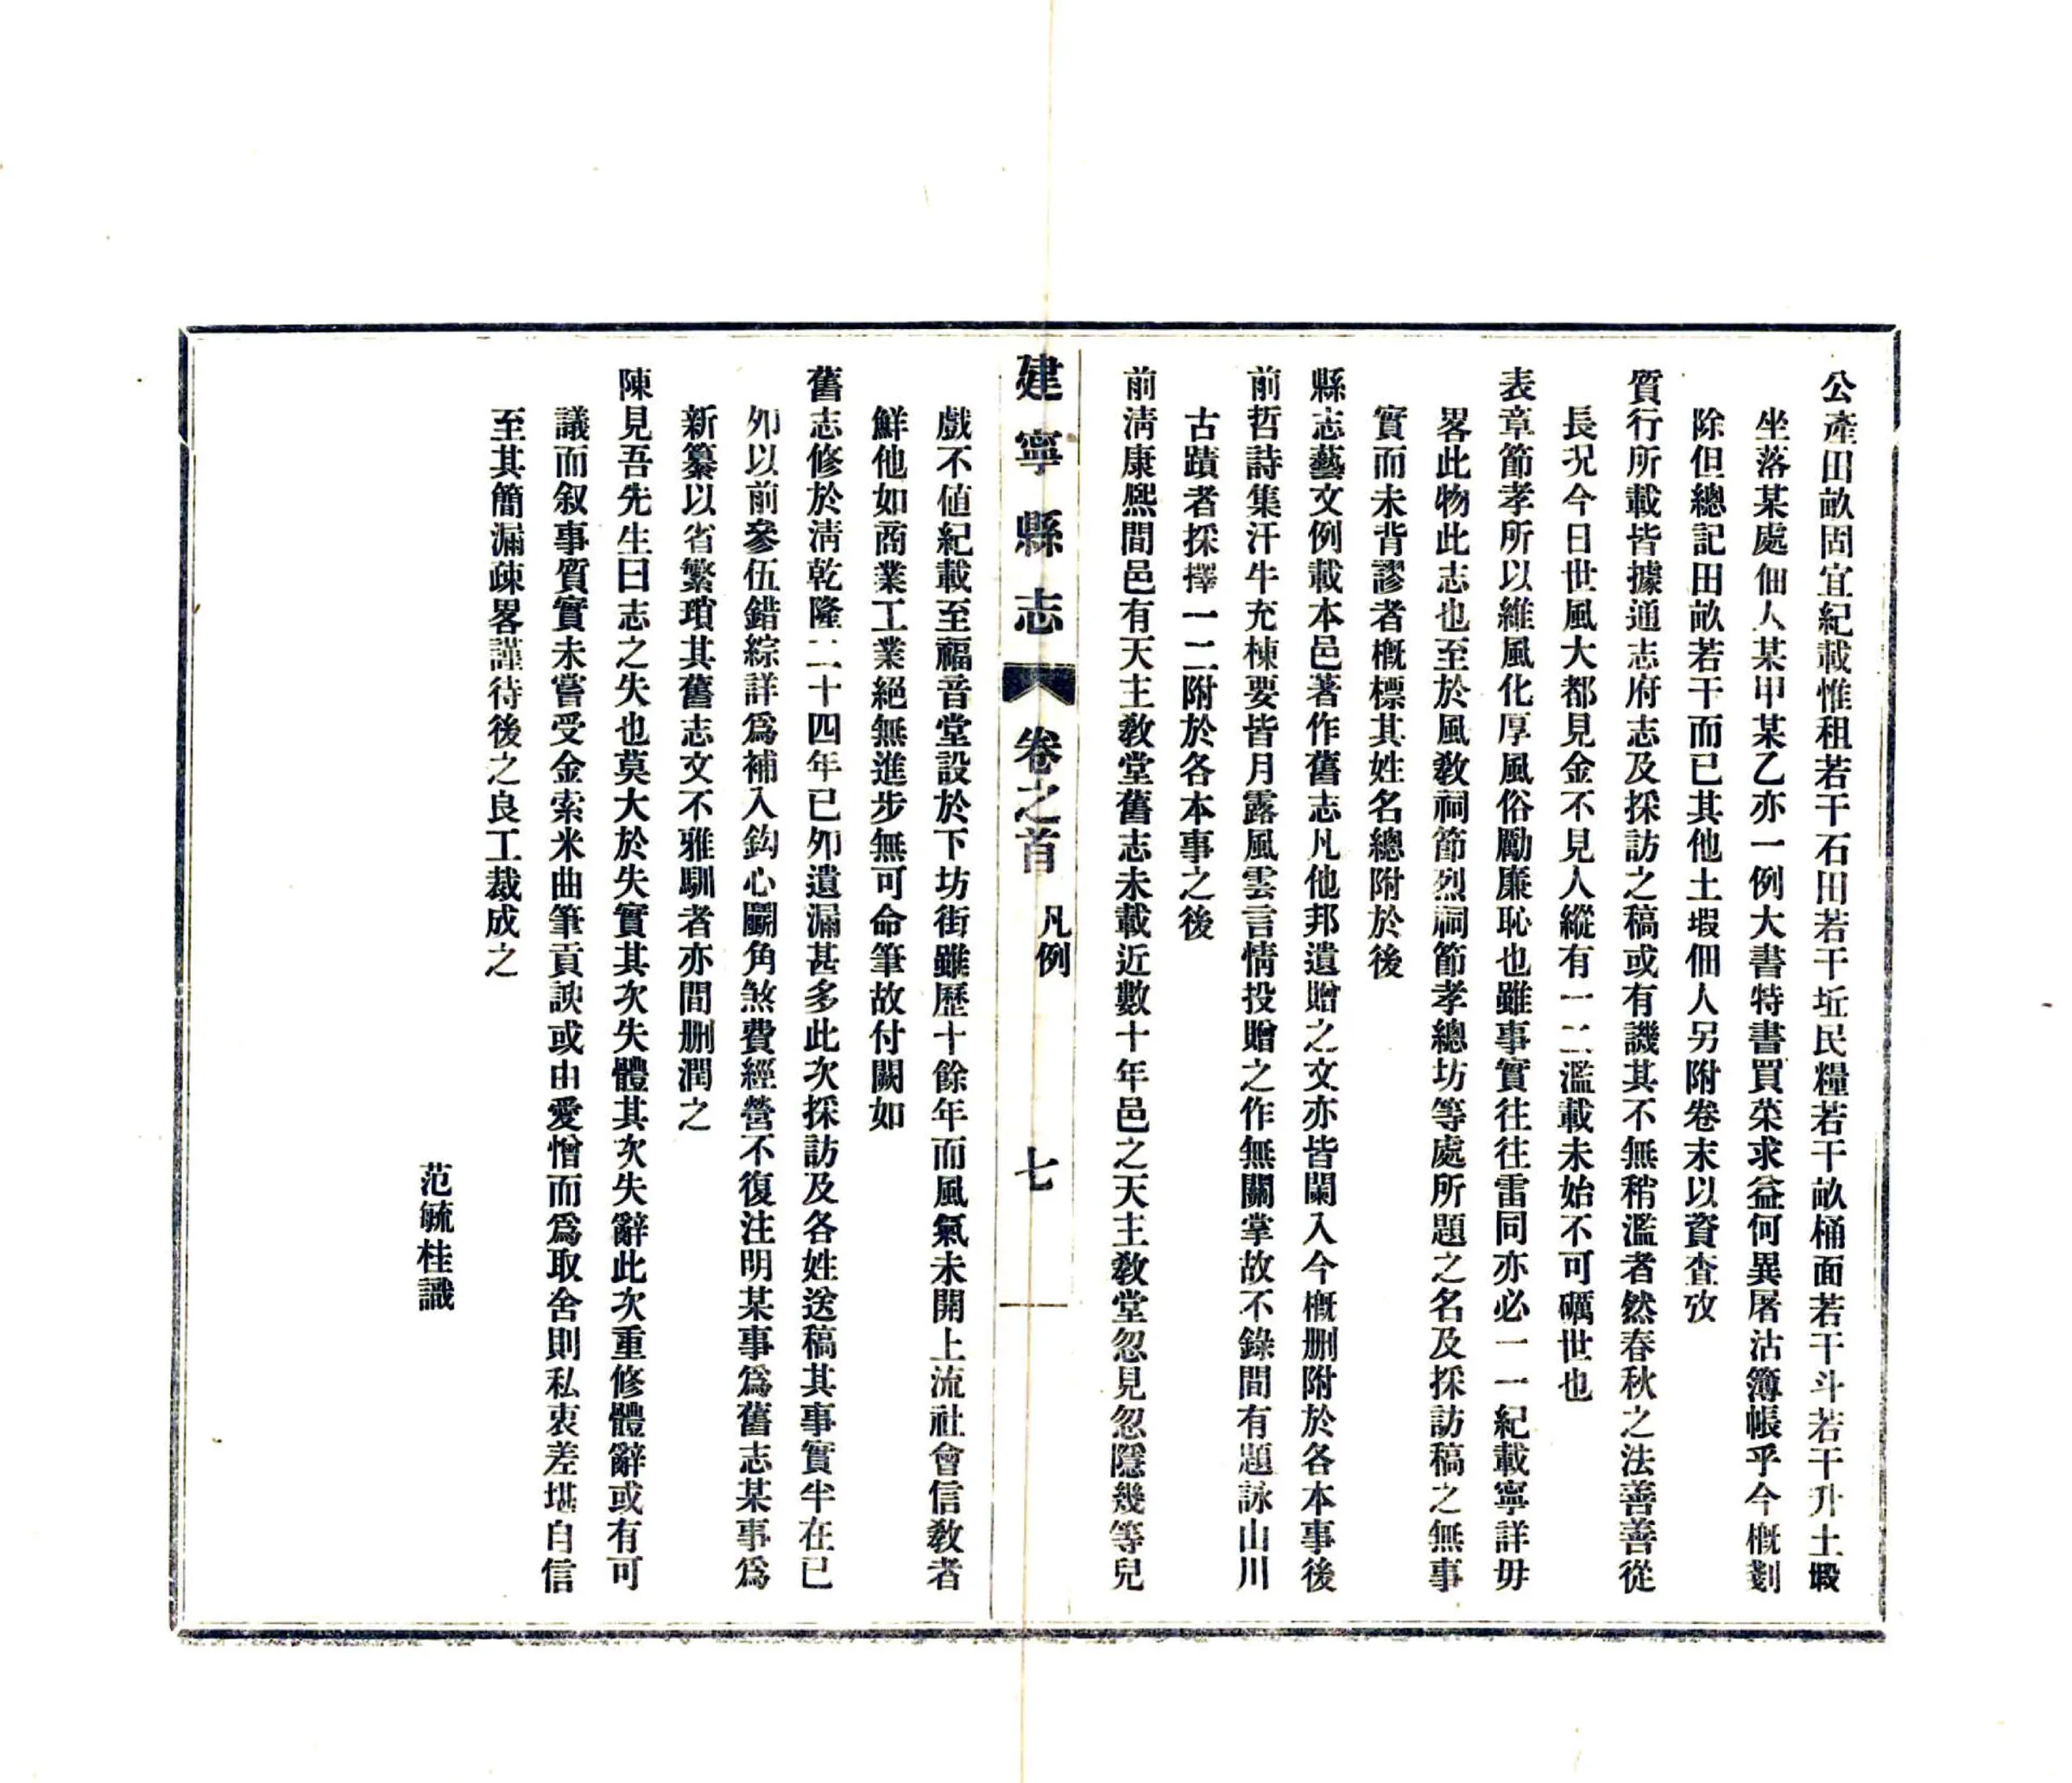 公產田畝固宜紀載惟租若干石田若干坵民糧若干畝桶面若干斗若干升土塅
坐落某處佃人某甲某乙亦一例大書特書買菜求益何異屠沽簿帳乎今概剗
除但總記田畝若干而已其他土塅佃人另附卷末以資查攷
質行所載皆據通志府志及採訪之稿或有譏其不無稍濫者然春秋之法善善從
長況今日世風大都見金不見人縱有一二濫載未始不可礪世也
表章節孝所以維風化厚風俗勵廉恥也雖事實往往雷同亦必一一紀載寧詳毋
畧此物此志也至於風敎祠節烈祠節孝總坊等處所題之名及採訪稿之無事
實而未背謬者概標其姓名總附於後
縣志藝文例載本邑著作舊志凡他邦遺贈之文亦皆闌入今概刪附於各本事後
前哲詩集汗牛充棟要皆月露風雲言情投贈之作無關掌故不錄間有題詠山川
古蹟者採擇一二附於各本事之後
前淸康熙間邑有天主敎堂舊志未載近數十年邑之天主敎堂忽見忽隱幾等兒
建寧縣志
卷之首
凡例
七
戲不値紀載至福音堂設於下坊街雖歷十餘年而風氣未開上流社會信敎者
鮮他如商業工業絕無進步無可命筆故付闕如
舊志修於淸乾隆二十四年已夘遺漏甚多此次採訪及各姓送稿其事實半在已
夘以前參伍錯綜詳爲補入鈎心鬭角煞費經營不復注明某事爲舊志某事爲
新纂以省繁瑣其舊志文不雅馴者亦間刪潤之
陳見吾先生曰志之失也莫大於失實其次失體其次失辭此次重修體辭或有可
議而叙事質實未嘗受金索米曲筆貢諛或由愛憎而爲取舍則私衷差堪自信
至其簡漏疎畧謹待後之良工裁成之
范毓桂識